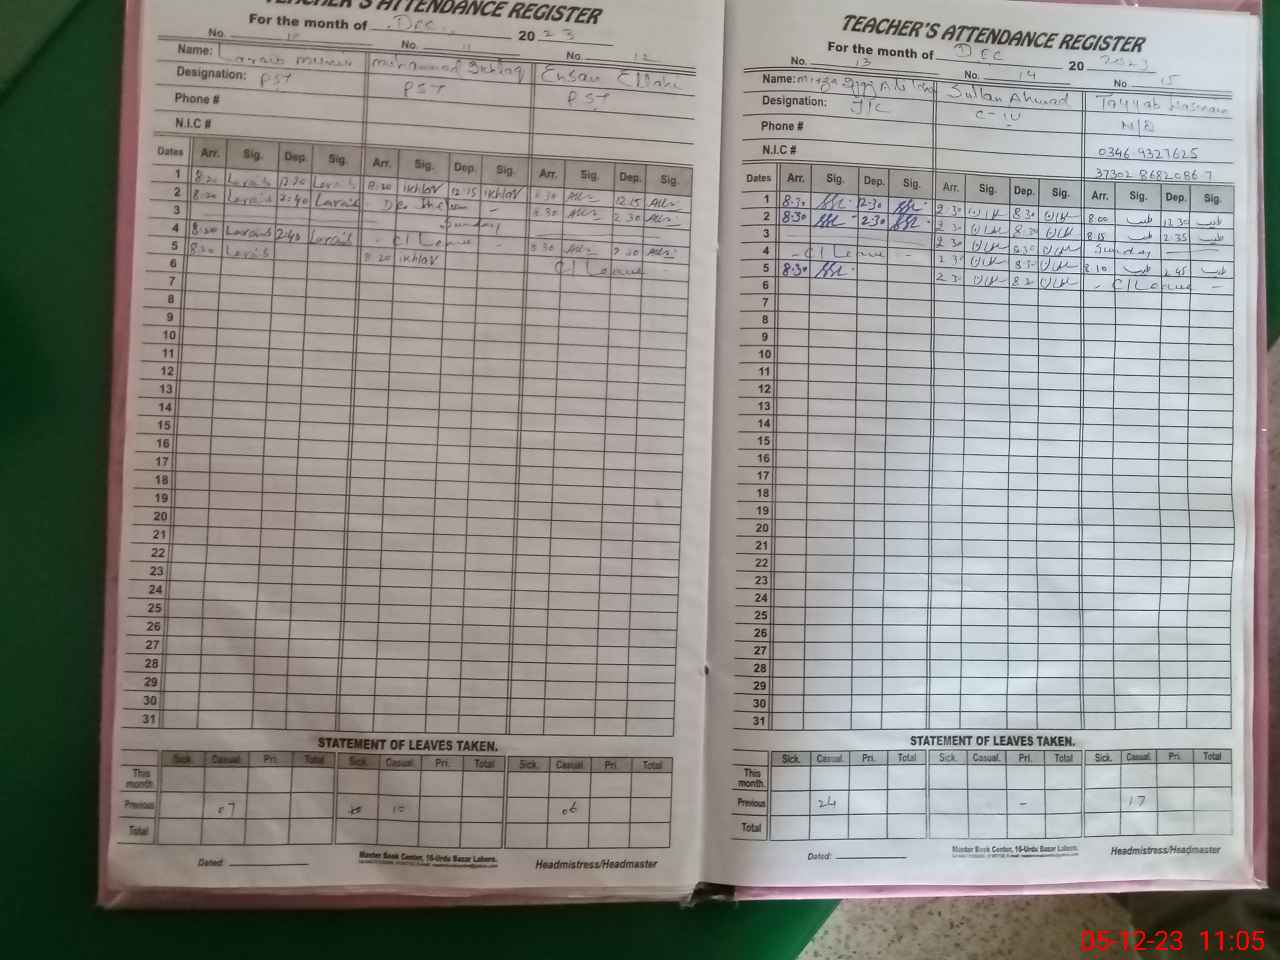 TEACHER'S ATTENDANCE REGISTER
For the month of Dec. 2023
No. 10 No. 11 No. 12
Name: Laraib Muhammad Ikhlaq Ehsan Ellahi
Designation: PST PST PST
Phone #
N.I.C #
Dates Arr. Sig. Dep. Sig. Arr. Sig. Dep. Sig. Arr. Sig. Dep. Sig.
1 8:20 Laraib 12:20 Laraib 8:20 ikhlaq 12:15 ikhlaq 8:30 12:15
2 8:20 Laraib 2:40 Laraib 8:30 2:30
3 Sunday
4 8:20 Laraib 2:40 Laraib - C/Leave - 8:30 2:30
5 8:20 Laraib 8:20 ikhlaq C/Leave -
6
7
8
9
10
11
12
13
14
15
16
17
18
19
20
21
22
23
24
25
26
27
28
29
30
31
STATEMENT OF LEAVES TAKEN.
Sick. Casual. Pri. Total Sick. Casual. Pri. Total Sick. Casual. Pri. Total
This month.
Previous 07 10 06
Total
Dated:
Master Book Center, 16-Urdu Bazar Lahore.
Headmistress/Headmaster
TEACHER'S ATTENDANCE REGISTER
For the month of DEC 20 2023
No. 13 No. 14 No. 15
Name: Mirza Sultan Ahmad Tayyab Hasnain
Designation: J/C C-IV N/Q
Phone # 0346-9327625
N.I.C # 37302 8682086 7
Dates Arr. Sig. Dep. Sig. Arr. Sig. Dep. Sig. Arr. Sig. Dep. Sig.
1 8:30 12:30 2:30 8:30 8:00 طیب 12:30 طیب
2 8:30 2:30 2:30 8:30 8:15 طیب 2:35 طیب
3 2:30 8:30 Sunday
4 - C/Leave - 2:30 8:30 8:10 طیب 2:45 طیب
5 8:30 2:30 8:20 - C/Leave -
6
7
8
9
10
11
12
13
14
15
16
17
18
19
20
21
22
23
24
25
26
27
28
29
30
31
STATEMENT OF LEAVES TAKEN.
Sick. Casual. Pri. Total Sick. Casual. Pri. Total Sick. Casual. Pri. Total
This month.
Previous 24 - 17
Total
Dated:
Master Book Center, 16-Urdu Bazar Lahore.
Headmistress/Headmaster
05-12-23 11:05